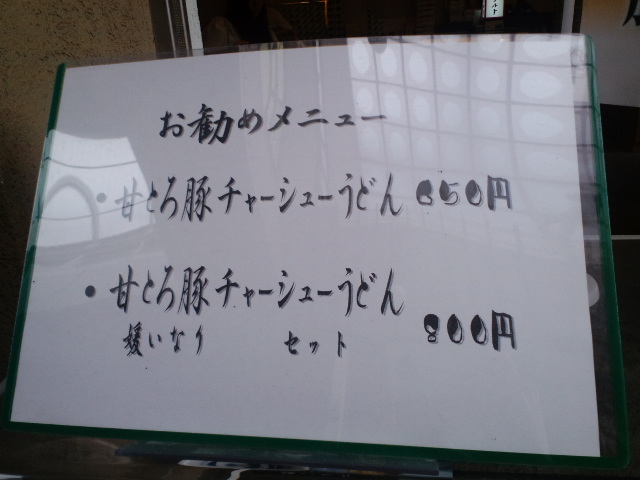 お勧めメニュー
・甘とろ豚チャーシューうどん 650円
・甘とろ豚チャーシューうどん
媛いなり セット 800円